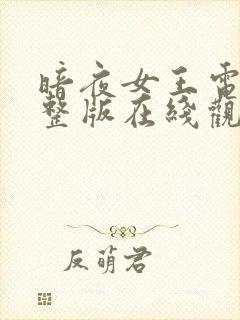 暗夜女王電
整版在綫觀
反萌君